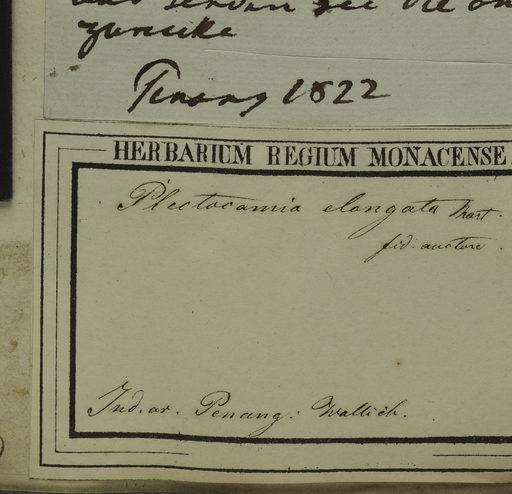 zurücke
Penang 1822
HERBARIUM REGIUM MONACENSE.
Plectocamia elongata Mart.
fid. auctore.
Ind. or. Penang: Wallich.